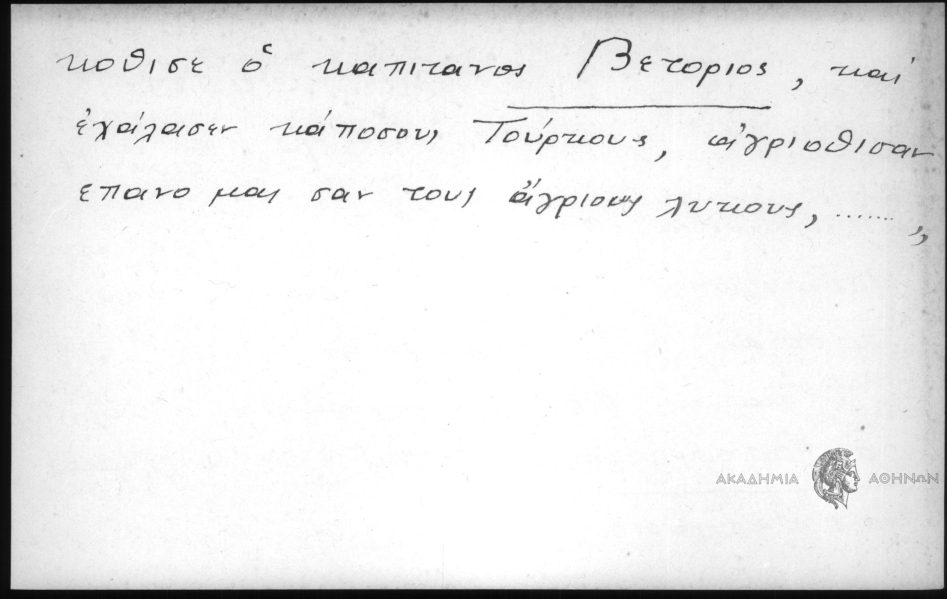 κοθισε ὁ καπιτανος Βετοριος, καί
ἐχάλασεν κάποσους Τούρκους, ἀγριοθισαν
επανο μας σαν τους ἄγριους λυκους, ....... ,,
ΑΚΑΔΗΜΙΑ ΑΘΗΝΩΝ